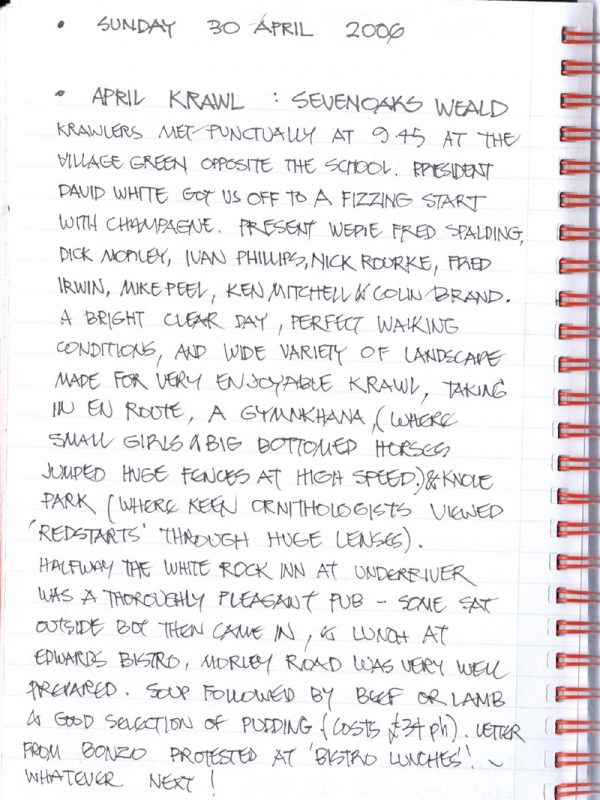 • SUNDAY 30 APRIL 2006
• APRIL KRAWL : SEVENOAKS WEALD
KRAWLERS MET PUNCTUALLY AT 9 45 AT THE
VILLAGE GREEN OPPOSITE THE SCHOOL. PRESIDENT
DAVID WHITE GOT US OFF TO A FIZZING START
WITH CHAMPAGNE. PRESENT WERE FRED SPALDING,
DICK MORLEY, IVAN PHILLIPS, NICK ROURKE, FRED
IRWIN, MIKE PEEL, KEN MITCHELL & COLIN BRAND.
A BRIGHT CLEAR DAY, PERFECT WALKING
CONDITIONS, AND WIDE VARIETY OF LANDSCAPE
MADE FOR VERY ENJOYABLE KRAWL, TAKING
IN EN ROUTE, A GYMNKHANA, (WHERE
SMALL GIRLS & BIG BOTTOMED HORSES
JUMPED HUGE FENCES AT HIGH SPEED.) & KNOLE
PARK (WHERE KEEN ORNITHOLOGISTS VIEWED
'REDSTARTS' THROUGH HUGE LENSES).
HALFWAY THE WHITE ROCK INN AT UNDERRIVER
WAS A THOROUGHLY PLEASANT PUB - SOME SAT
OUTSIDE BOT THEN CAME IN, & LUNCH AT
EDWARDS BISTRO, MORLEY ROAD WAS VERY WELL
PREPARED. SOUP FOLLOWED BY BEEF OR LAMB
& GOOD SELECTION OF PUDDING. (COSTS £34 ph). LETTER
FROM BONZO PROTESTED AT 'BISTRO LUNCHES'! ~
WHATEVER NEXT!